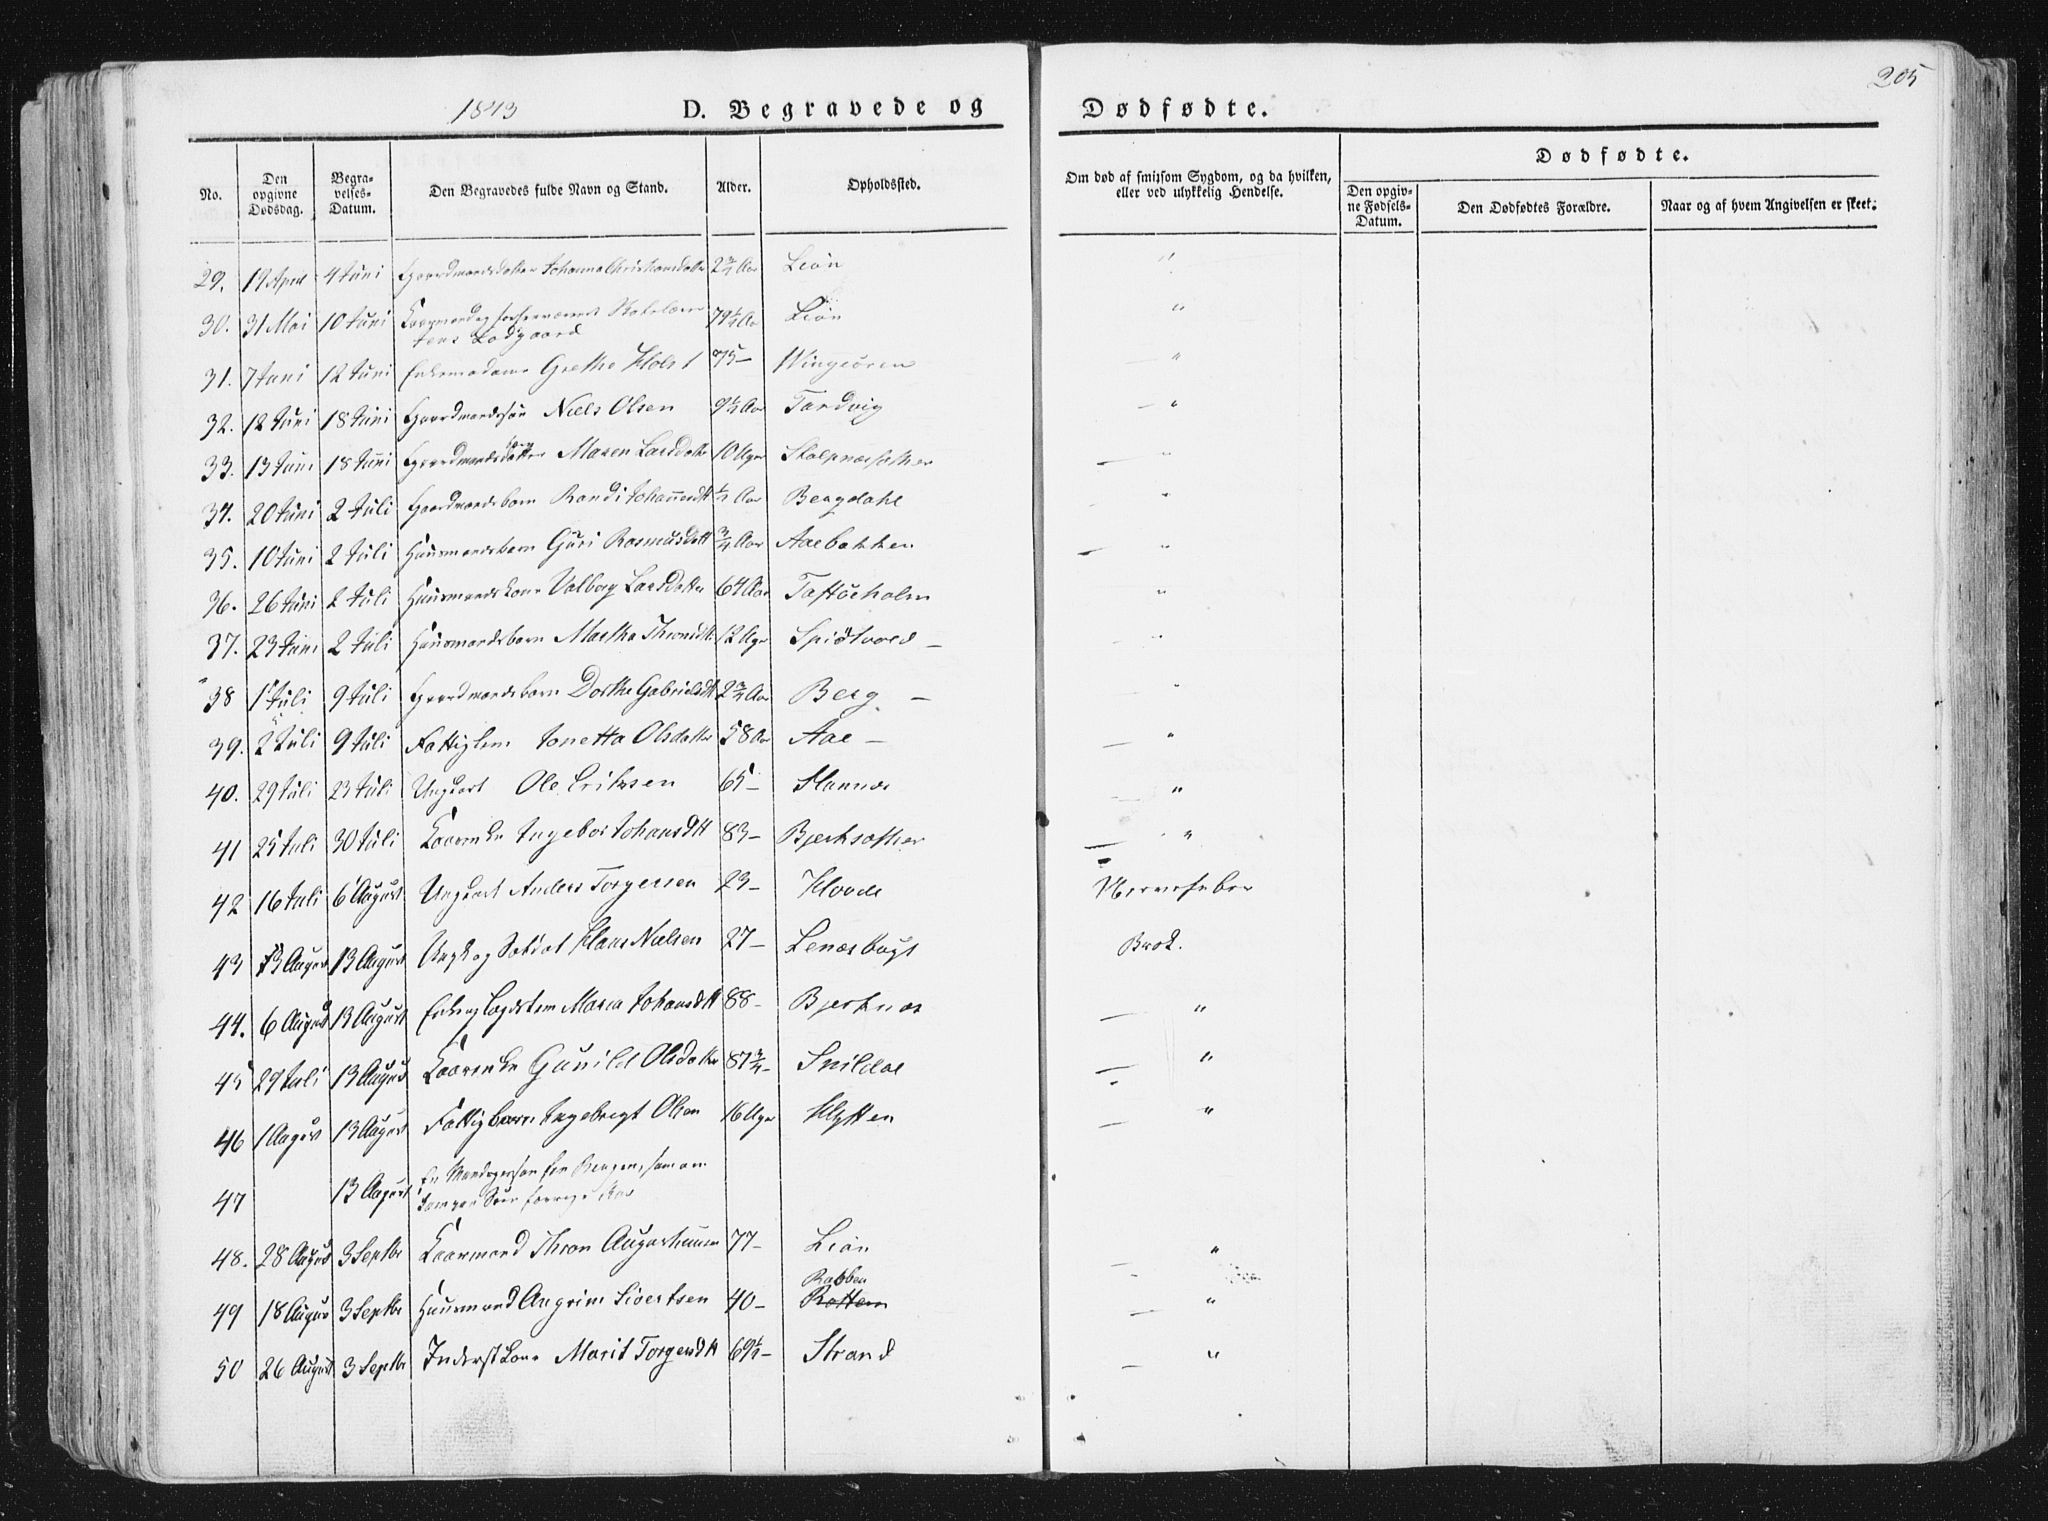 205
1843 D. Begravede og Dødfødte.
No. Den opgivne Dødsdag. Begravelses-Datum. Den Begravedes fulde Navn og Stand. Alder. Opholdssted. Om død af smitsom Sygdom, og da hvilken, eller ved ulykkelig Hendelse. Dødfødte. Den opgivne Fødsels-Datum. Den Dødfødtes Forældre. Naar og af hvem Angivelsen er skeet.
29. 19 April 4 Juni Gaardmandsdatter Johanna Christiansdatter 2 3/4 Aar Leön "
30. 31 Mai 10 Juni Kaarmand og forhenværende Skolelærer Jens Lodgaard 79 1/4 Aar Leön "
31. 7 Juni 12 Juni Enkemadame Grethe Holst 75 — Wingsören — "
32. 12 Juni 18 Juni Gaardmandssön Niels Olsen 9 1/2 Aar Tandvig — "
33. 13 Juni 18 Juni Gaardmands Maren Larsdatter 10 Uger Stolpnessæther — "
34. 20 Juni 2 Juli Gaardmandsbarn Randi Johannesdtt 1/2 Aar Bergdahl — "
35. 10 Juni 2 Juli Huusmandsbarn Guri Rasmusdatt 3/4 Aar Aaebakken — "
36. 26 Juni 2 Juli Huusmandskone Valborg Larsdatter 64 Aar Taftöeholm "
37. 23 Juni 2 Juli Huusmandsbarn Martha Thronsdtt 12 Uger Spidtvold — "
38 1 Juli 9 Juli Gaardmandsbarn Dorthe Gabrielsdtt 2 3/4 Aar Berg — "
39. 2 Juli 9 Juli Fattiglem Jonetta Olsdatter 58 Aar Aae — — "
40. 29 Juli 23 Juli Ungkarl Ole Eriksen 65 — Hannes — "
41 25 Juli 30 Juli Kaarenke Ingebor Johansdtt 83 — Bjerksæther — "
42 16 Juli 6 August Ungkarl Anders Torgersen 23 — Hovde Nervefeber
43 13 August 13 August Ungk og Soldat Hans Nielsen 27 — Lenesbugt Brok.
44. 6 August 13 August Enke og Lægdslem Maria Johansdtt 88 — Bjerknes — "
45 29 Juli 13 August Kaarenke Gunild Olsdatter 87 3/4 — Snildal — "
46 1 August 13 August Fattigbarn Ingebrigt Olsen 16 Uger Hytten — "
47 13 August En Mandsperson fra Bergen, som
48. 28 August 3 Septbr Kaarmand Thron Augustinusen 77 — Leön "
49 18 August 3 Septbr Huusmand Angrim Sivertsen 40 — Rabben Rottem — "
50 26 August 3 Septbr Inderstkone Marit Torgersdtt 69 1/2 — Strand — "